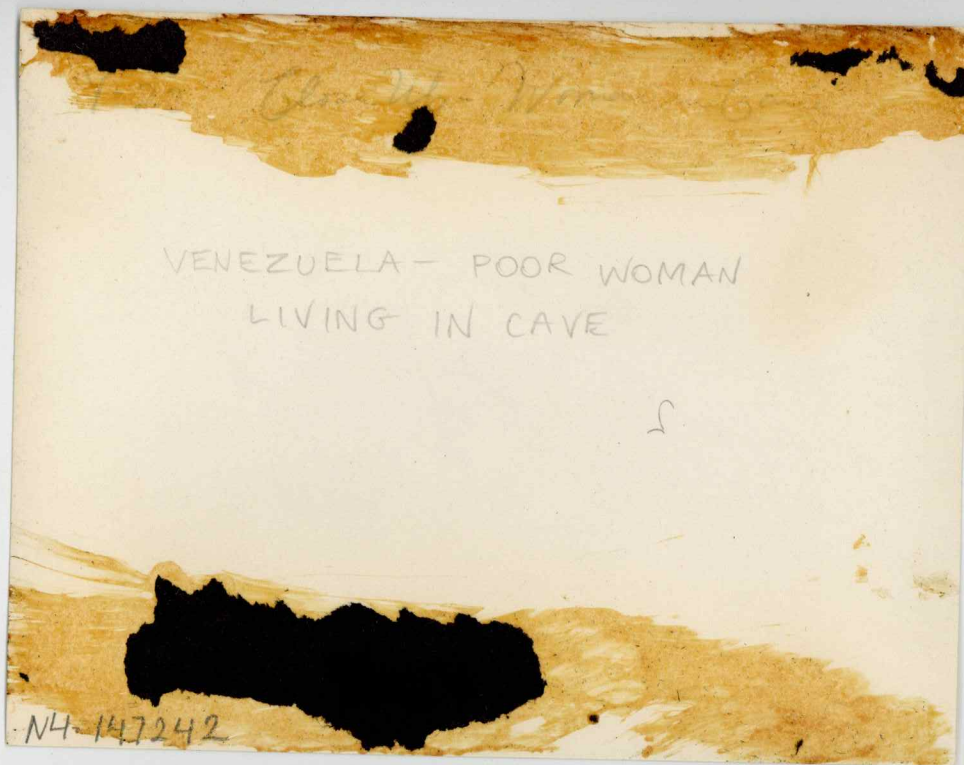 VENEZUELA - POOR WOMAN
LIVING IN CAVE
N4-147242